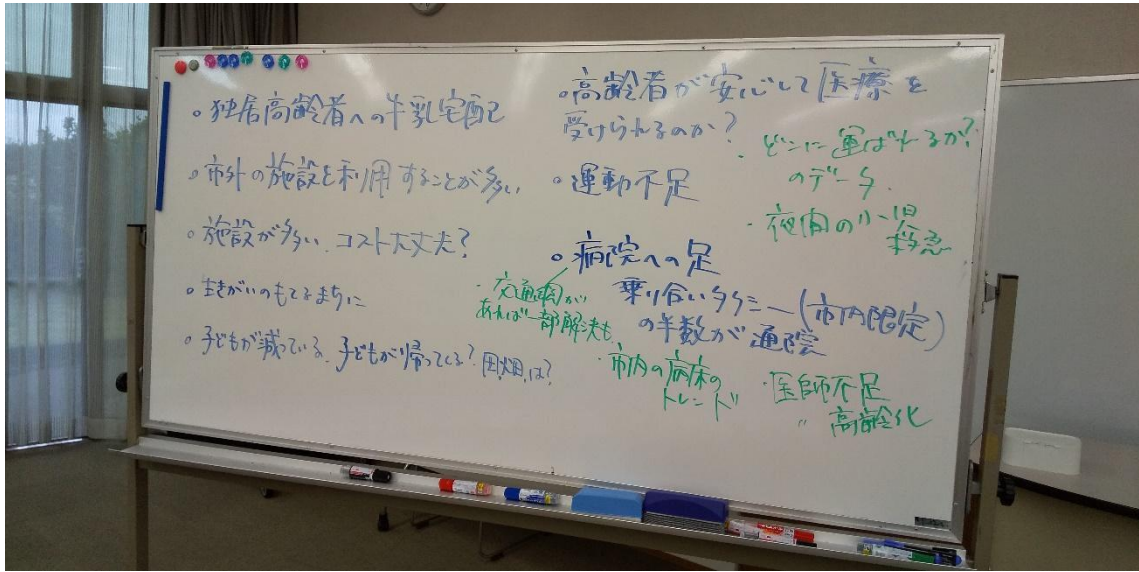 。独居高齢者への牛乳宅配
。市外の施設を利用することが多い
。施設が多い、コスト大丈夫?
。生きがいのもてるまちに
。子どもが減っている、子どもが帰ってくる?田畑は?
。高齢者が安心して医療を
受けられるのか?
・どこに運ばれるか?
のデータ.
。運動不足
・夜間の小児
救急
。病院への足
・交通網が
あれば一部解決も
乗り合いタクシー(市内限定)
の半数が通院
・市内の病床の
トレンド
・医師不足
〃 高齢化